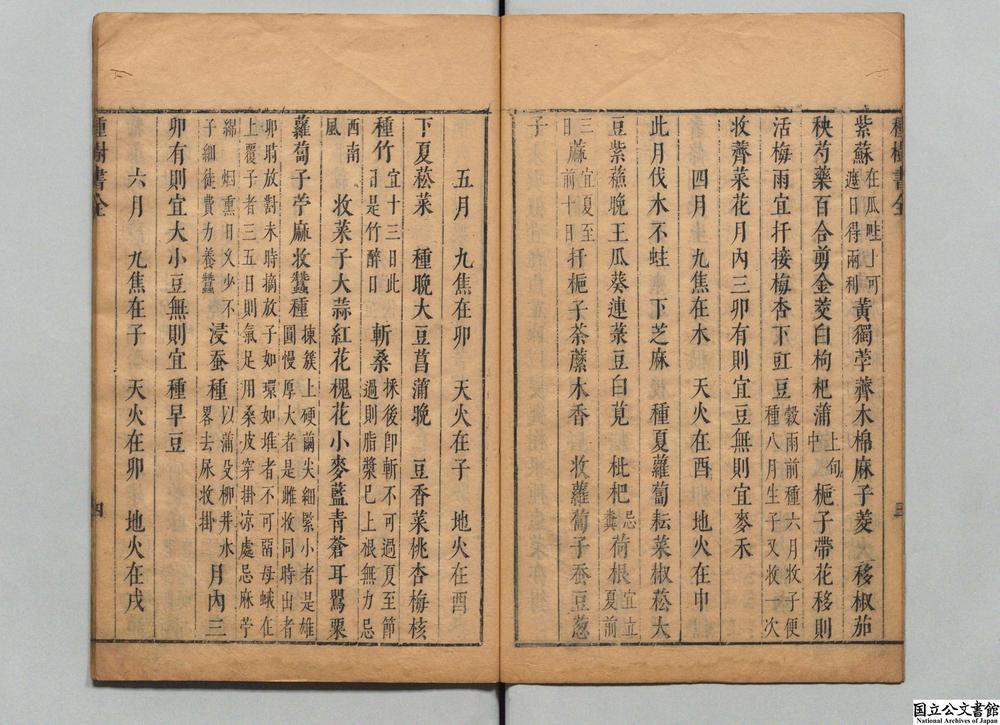 種樹書全
三
紫蘇在瓜畦上可
遮日得兩利黃獨荸薺木棉麻子菱火移椒茄
秧芍藥百合剪金菱臼枸杞蒲上旬
中梔子帶花移則
活梅雨宜扦接梅杏下豇豆穀雨前種六月收子便
種八月生子又收一次
收薺菜花月內三卯有則宜豆無則宜麥禾
四月　九焦在木　天火在酉　地火在申
此月伐木不蛀　下芝麻　種夏蘿蔔耘菜椒菘大
豆紫蘓晚王瓜葵連菉豆白莧　枇杷忌
糞荷根宜立
夏前
三
日蔴宜夏至
前十日扦梔子荼蘼木香　收蘿蔔子蚕豆葱
子
五月　九焦在卯　天火在子　地火在酉
下夏菘菜　種晚大豆菖蒲晚　豆香菜桃杏梅核
種竹宜十三日此
日是竹醉日　斬桑採後卽斬不可過夏至節
過則脂漿已上根無力忌
西南
風　收菜子大蒜紅花槐花小麥藍青蒼耳罌粟
蘿蔔子苧麻收蠶種揀簇上硬繭尖細緊小者是雄
圓慢厚大者是雌收同時出者
卯時放對未時摘放子如環如堆者不可留母蛾在
上覆子者三五日則氣足用桑皮穿掛凉處忌麻苧
綿烟熏日久少不
子細徒費力養蠶　浸蚕種以蒲殳柳井水
畧去尿收掛　月內三
卯有則宜大小豆無則宜種早豆
六月　九焦在子　天火在卯　地火在戌
種樹書全
四
国立公文書館
National Archives of Japan